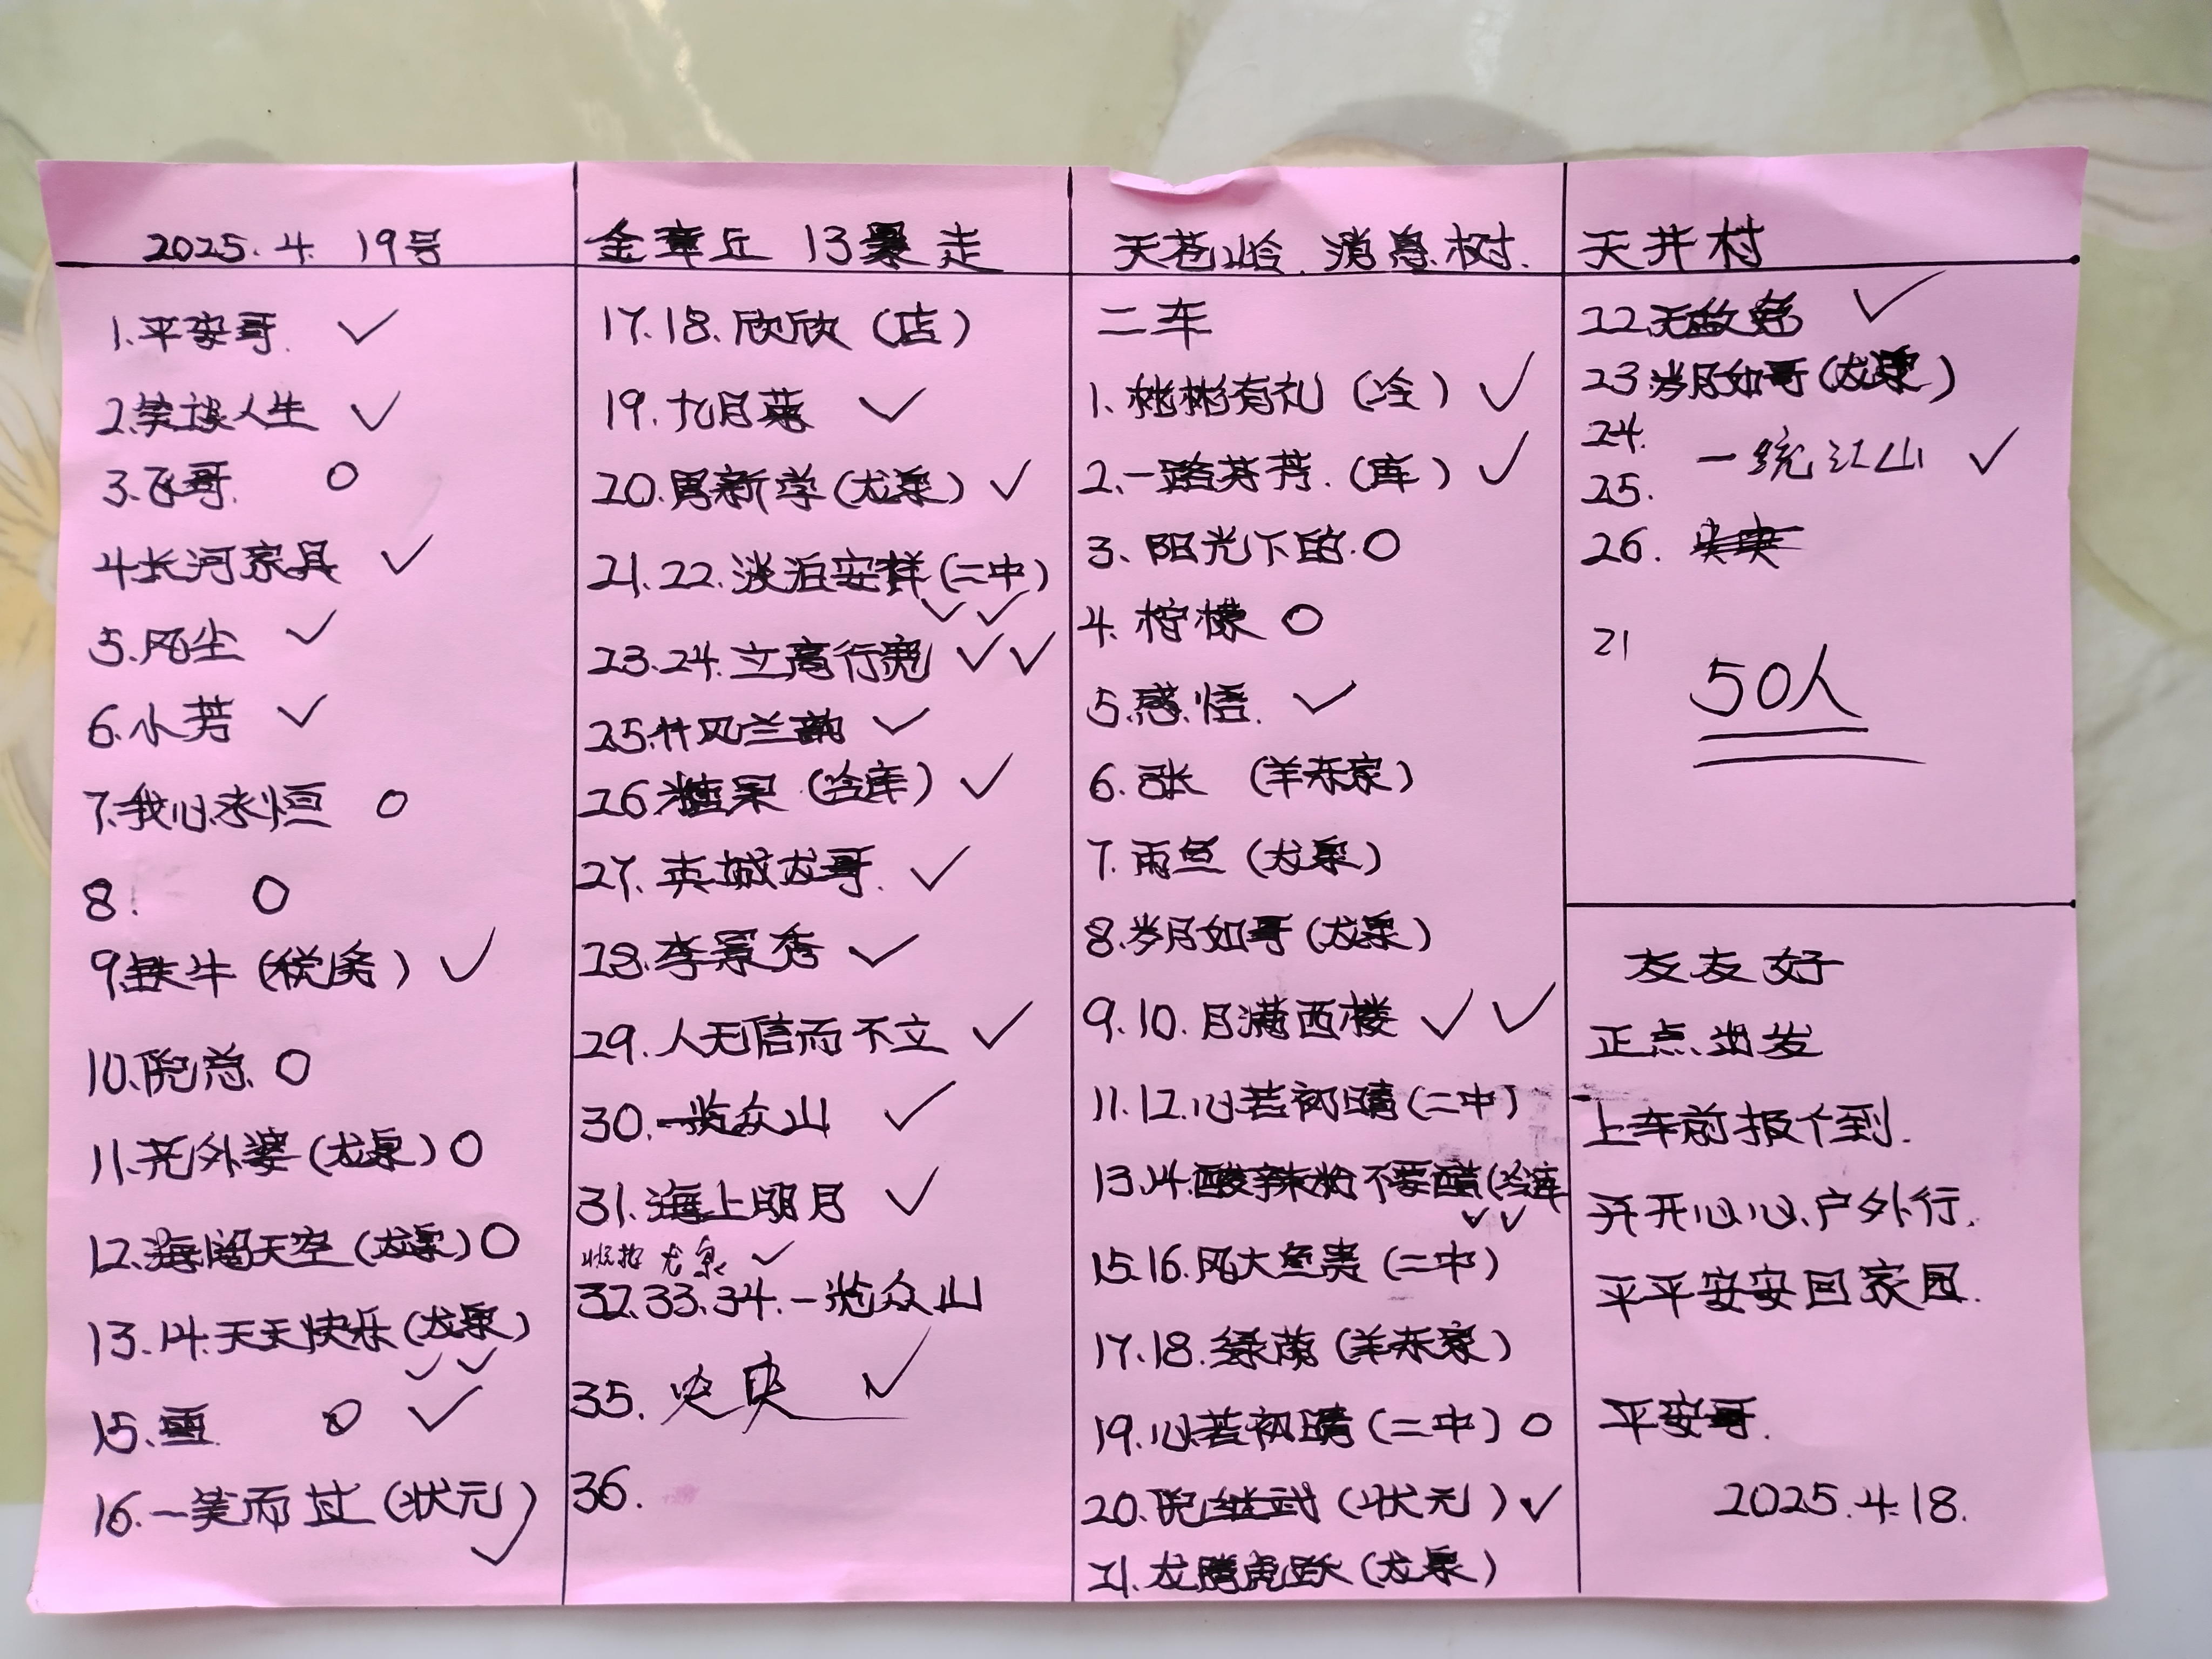 2025.4.19号
1.平安哥 ✓
2.笑谈人生 ✓
3.飞哥. O
4.长河家具 ✓
5.风尘 ✓
6.小芳 ✓
7.我心永恒 O
8. O
9.铁牛(税务) ✓
10.倪总 O
11. 外婆(龙泉) O
12.海阔天空(龙泉) O
13.14.天天快乐(龙泉)
✓✓
15.雪 O ✓
16.一笑而过(状元)
✓
金章丘 13暴走
17.18.欣欣(店)
19.九月菊 ✓
20.男新学(龙泉) ✓
21.22.淡泊安祥(二中)
✓✓
23.24.立高行宽 ✓✓
25.竹风兰韵 ✓
26糖果(冷库) ✓
27.英城龙哥. ✓
28.李景秀 ✓
29.人无信而不立 ✓
30.一览众山 ✓
31.海上明月 ✓
龙泉 ✓
32.33.34.一览众山
35. ✓
36.
天苍岭.消息树.
二车
1.彬彬有礼(冷) ✓
2.一路芬芳.(库) ✓
3.阳光下的.O
4.柠檬 O
5.感悟. ✓
6.张 (羊东家)
7.雨鱼(龙泉)
8.岁月如哥(龙泉)
9.10.月满西楼 ✓✓
11.12.心若初晴(二中)
13.14.酸辣粉不要醋(冷库
✓✓
15.16.风大鱼贵(二中)
17.18.绿萌(羊东家)
19.心若初晴(二中) O
20.倪继武(状元) ✓
21.龙腾虎跃(龙泉)
天井村
22.无敌 ✓
23岁月如哥(龙泉)
24.
一统江山 ✓
25.
26.
21
50人
友友好
正点出发
上车前报个到.
开开心心.户外行.
平平安安回家园.
平安哥.
2025.4.18.